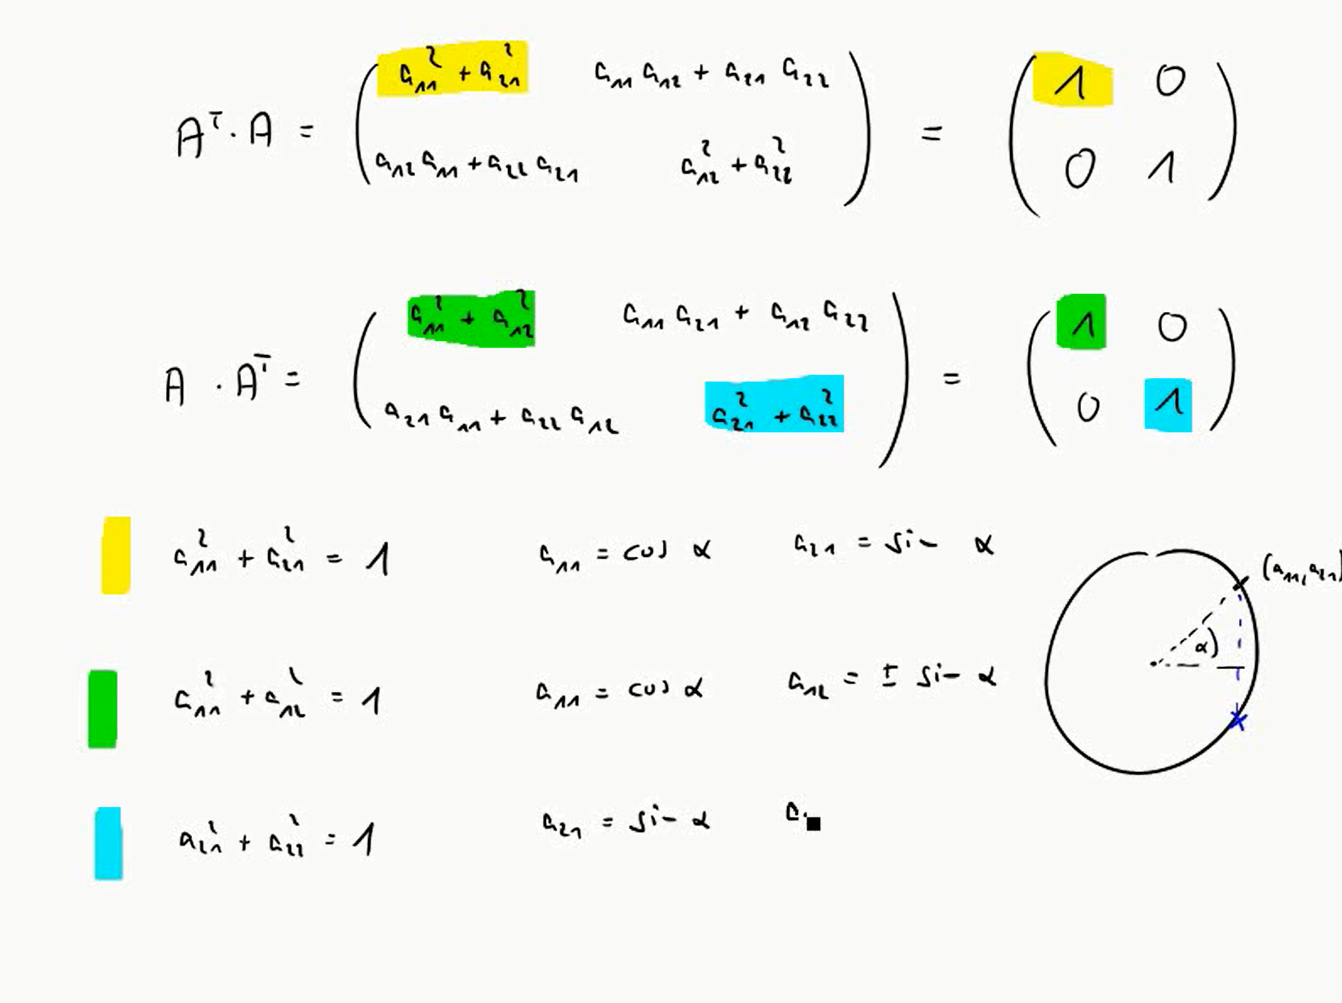 Aᵀ · A = ( a₁₁² + a₂₁²   a₁₁ a₁₂ + a₂₁ a₂₂ ) = ( 1 0 )
( a₁₂ a₁₁ + a₂₂ a₂₁   a₁₂² + a₂₂² ) ( 0 1 )
A · Aᵀ = ( a₁₁² + a₁₂²   a₁₁ a₂₁ + a₁₂ a₂₂ ) = ( 1 0 )
( a₂₁ a₁₁ + a₂₂ a₁₂   a₂₁² + a₂₂² ) ( 0 1 )
a₁₁² + a₂₁² = 1   a₁₁ = cos α   a₂₁ = sin α
(a₁₁, a₂₁)
α
a₁₁² + a₁₂² = 1   a₁₁ = cos α   a₁₂ = ± sin α
a₂₁² + a₂₂² = 1   a₂₁ = sin α   a